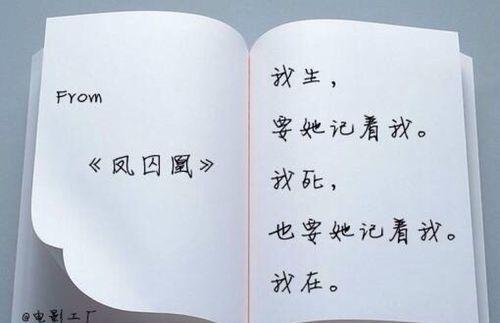 From
《凤囚凰》
@电影工厂
我生，
要她记着我。
我死，
也要她记着我。
我在。